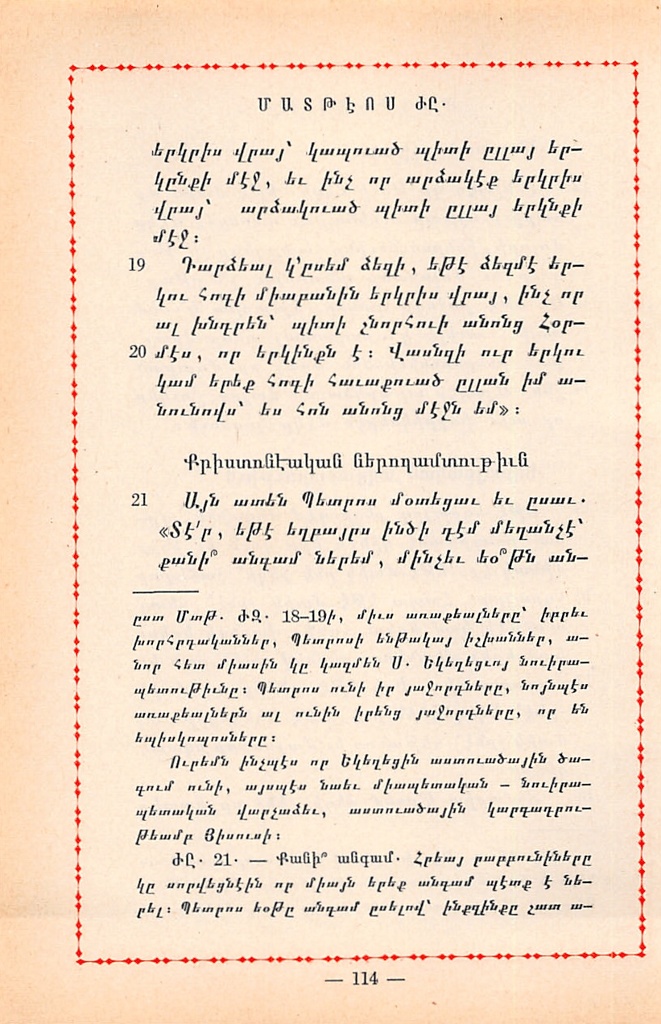 ՄԱՏԹԷՈՍ ԺԸ.
երկրիս վրայ՝ կապուած պիտի ըլլայ եր–
կընքի մէջ, եւ ինչ որ արձակէք երկրիս
վրայ՝ արձակուած պիտի ըլլայ երկնքի
մէջ:
19 Դարձեալ կ՚ըսեմ ձեզի, եթէ ձեզմէ եր–
կու հոգի միաբանին երկրիս վրայ, ինչ որ
ալ խնդրեն՝ պիտի շնորհուի անոնց Հօր–
20 մէս, որ երկինքն է: Վասնզի ուր երկու
կամ երեք հոգի հաւաքուած ըլլան իմ ա–
նունովս՝ ես հոն անոնց մէջն եմ»:
Քրիստոնէական ներողամտութիւն
21 Այն ատեն Պետրոս մօտեցաւ եւ ըսաւ.
«Տէ՛ր, եթէ եղբայրս ինծի դէմ մեղանչէ՝
քանի՞ անգամ ներեմ, մինչեւ եօ՞թն ան–
ըստ Մտթ. ԺԶ. 18–19ի, միւս առաքեալները՝ իբրեւ
խորհրդականներ, Պետրոսի ենթակայ իշխաններ, ա–
նոր հետ միասին կը կազմեն Ս. Եկեղեցւոյ նուիրա–
պետութիւնը: Պետրոս ունի իր յաջորդները, նոյնպէս
առաքեալներն ալ ունին իրենց յաջորդները, որ են
եպիսկոպոսները:
Ուրեմն ինչպէս որ Եկեղեցին աստուածային ծա–
գում ունի, այսպէս նաեւ միապետական – նուիրա–
պետական վարչաձեւ, աստուածային կարգադրու–
թեամբ Յիսուսի:
ԺԸ. 21. — Քանի՞ անգամ. Հրեայ րաբբունիները
կը սորվեցնէին որ միայն երեք անգամ պէտք է նե–
րել: Պետրոս եօթը անգամ ըսելով՝ ինքզինքը շատ ա–
— 114 —